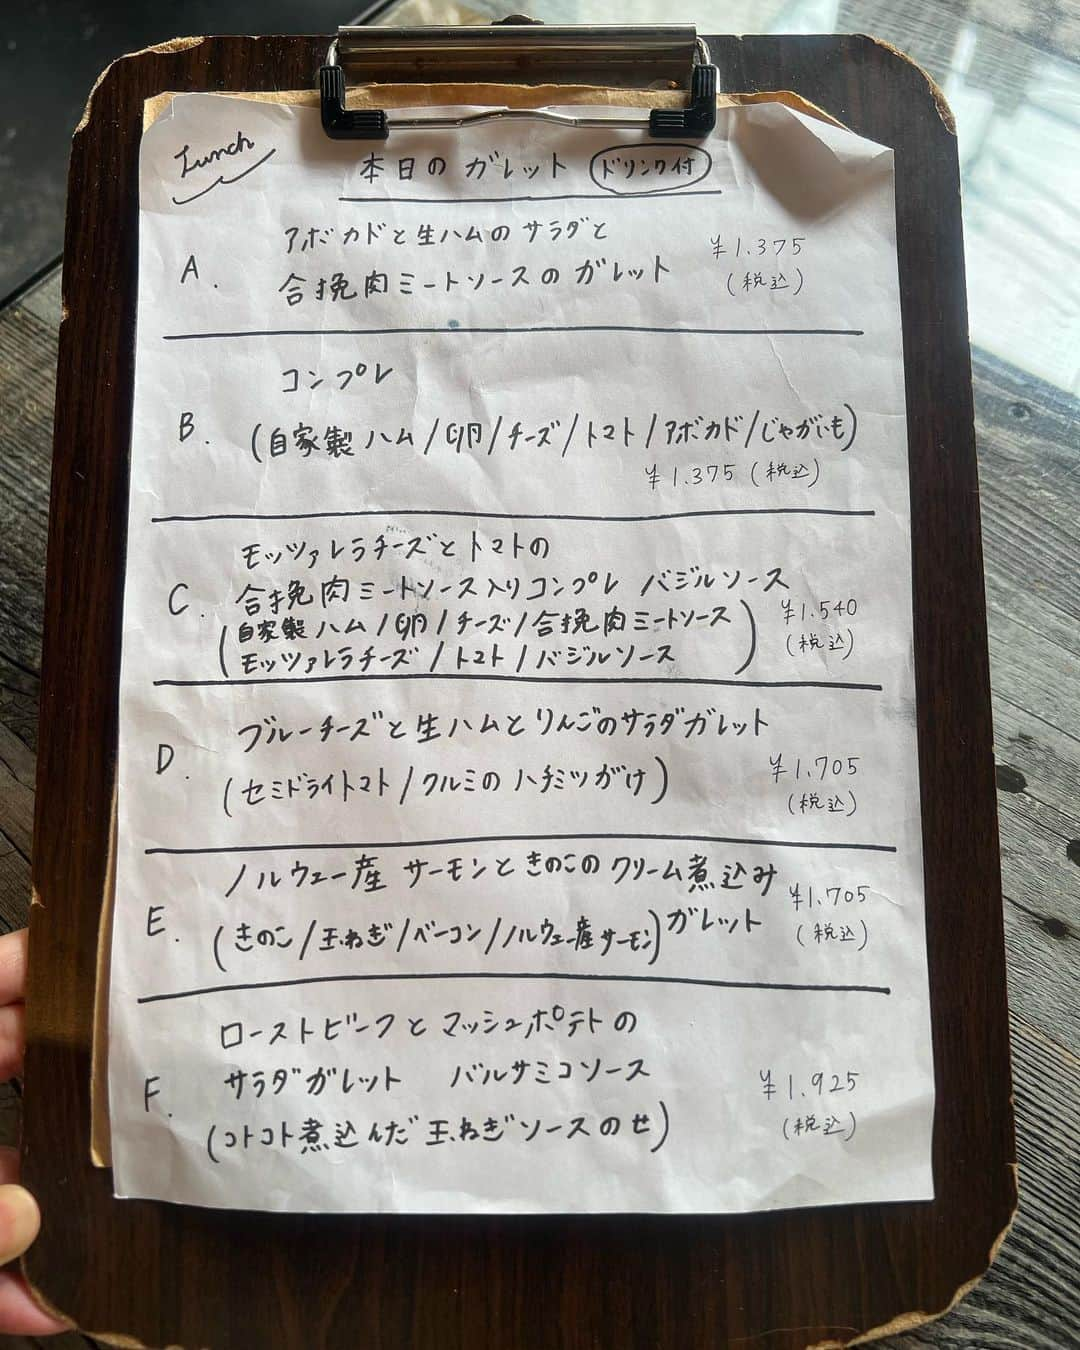 Lunch
本日のガレット ドリンク付
A. アボカドと生ハムのサラダと
合挽肉ミートソースのガレット
¥1.375
(税込)
B. コンプレ
(自家製ハム/卵/チーズ/トマト/アボカド/じゃがいも)
¥1.375 (税込)
C. モッツァレラチーズとトマトの
合挽肉ミートソース入りコンプレ バジルソース
(自家製ハム/卵/チーズ/合挽肉ミートソース
モッツァレラチーズ/トマト/バジルソース)
¥1.540
(税込)
D. ブルーチーズと生ハムとりんごのサラダガレット
(セミドライトマト/クルミのハチミツがけ)
¥1.705
(税込)
E. ノルウェー産 サーモンときのこのクリーム煮込み
(きのこ/玉ねぎ/ベーコン/ノルウェー産サーモン) ガレット
¥1.705
(税込)
F. ローストビーフとマッシュポテトの
サラダガレット バルサミコソース
(コトコト煮込んだ玉ねぎソースのせ)
¥1.925
(税込)